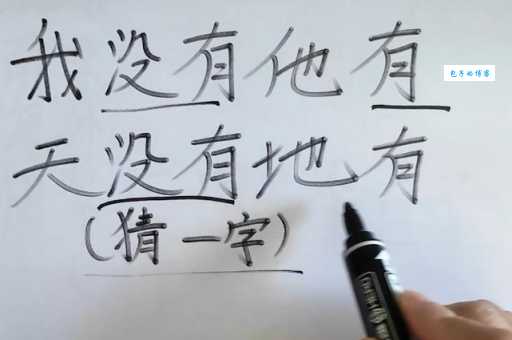 我没有他有
包子的博客
天没有地有
(猜一字)